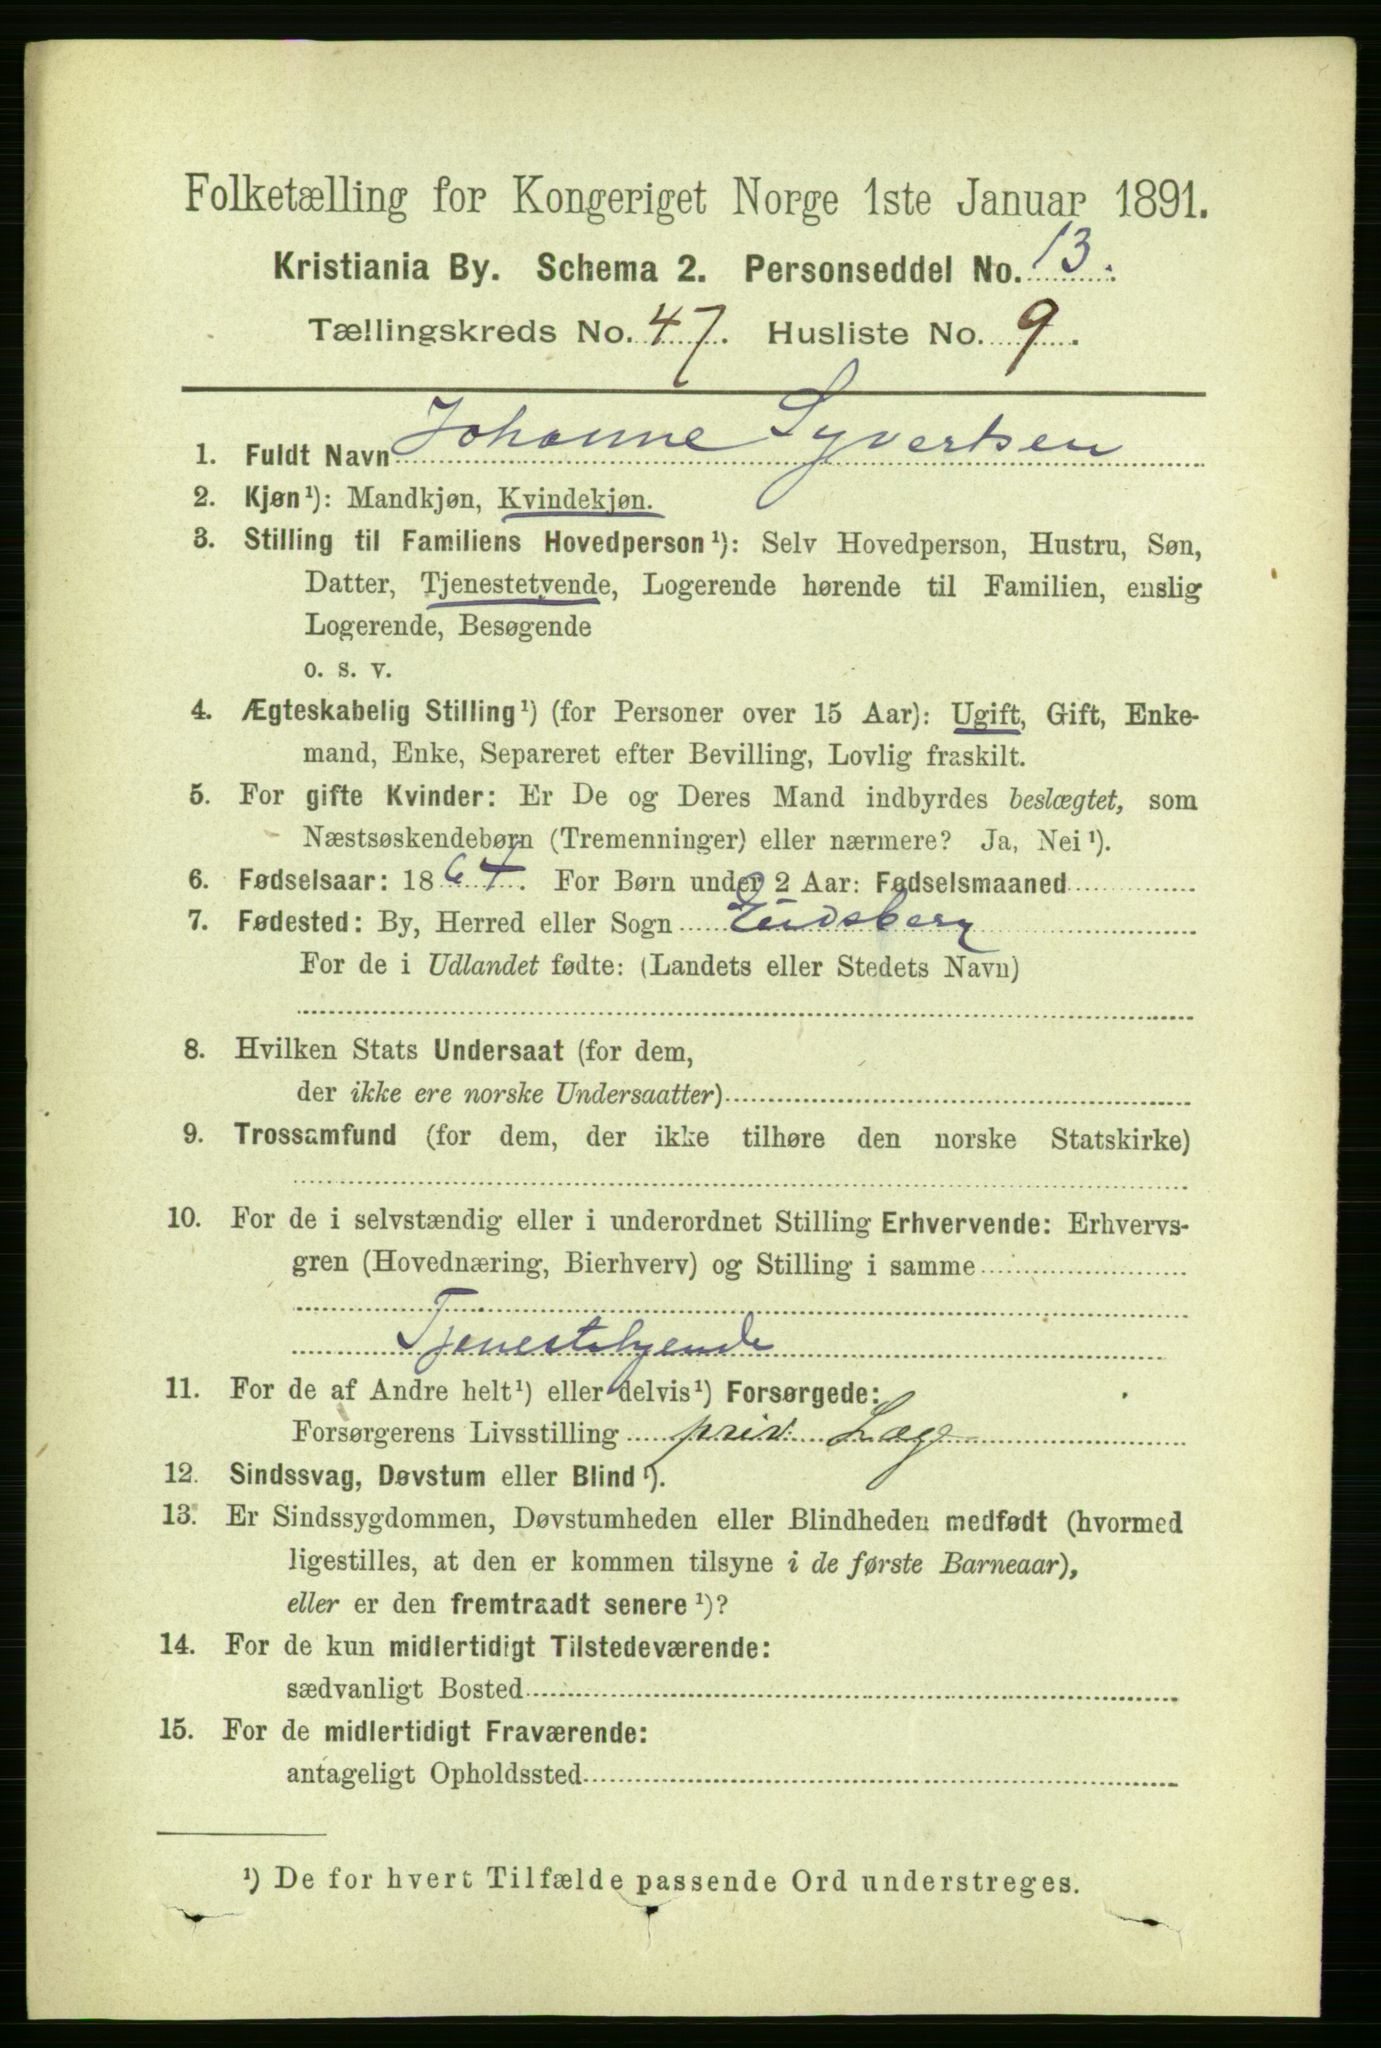 Folketælling for Kongeriget Norge 1ste Januar 1891.
Kristiania By. Schema 2. Personseddel No. 13.
Tællingskreds No. 47. Husliste No. 9.
1. Fuldt Navn Johanne Syvertsen
2. Kjøn¹): Mandkjøn, Kvindekjøn.
3. Stilling til Familiens Hovedperson¹): Selv Hovedperson, Hustru, Søn,
Datter, Tjenestetyende, Logerende hørende til Familien, enslig
Logerende, Besøgende
o. s. v.
4. Ægteskabelig Stilling¹) (for Personer over 15 Aar): Ugift, Gift, Enke-
mand, Enke, Separeret efter Bevilling, Lovlig fraskilt.
5. For gifte Kvinder: Er De og Deres Mand indbyrdes beslægtet, som
Næstsøskendebørn (Tremenninger) eller nærmere? Ja, Nei¹).
6. Fødselsaar: 1864. For Børn under 2 Aar: Fødselsmaaned
7. Fødested: By, Herred eller Sogn Eidsberg
For de i Udlandet fødte: (Landets eller Stedets Navn)
8. Hvilken Stats Undersaat (for dem,
der ikke ere norske Undersaatter)
9. Trossamfund (for dem, der ikke tilhøre den norske Statskirke)
10. For de i selvstændig eller i underordnet Stilling Erhvervende: Erhvervs-
gren (Hovednæring, Bierhverv) og Stilling i samme
Tjenestetyende
11. For de af Andre helt¹) eller delvis¹) Forsørgede:
Forsørgerens Livsstilling priv. Læge
12. Sindssvag, Døvstum eller Blind¹).
13. Er Sindssygdommen, Døvstumheden eller Blindheden medfødt (hvormed
ligestilles, at den er kommen tilsyne i de første Barneaar),
eller er den fremtraadt senere¹)?
14. For de kun midlertidigt Tilstedeværende:
sædvanligt Bosted
15. For de midlertidigt Fraværende:
antageligt Opholdssted
¹) De for hvert Tilfælde passende Ord understreges.